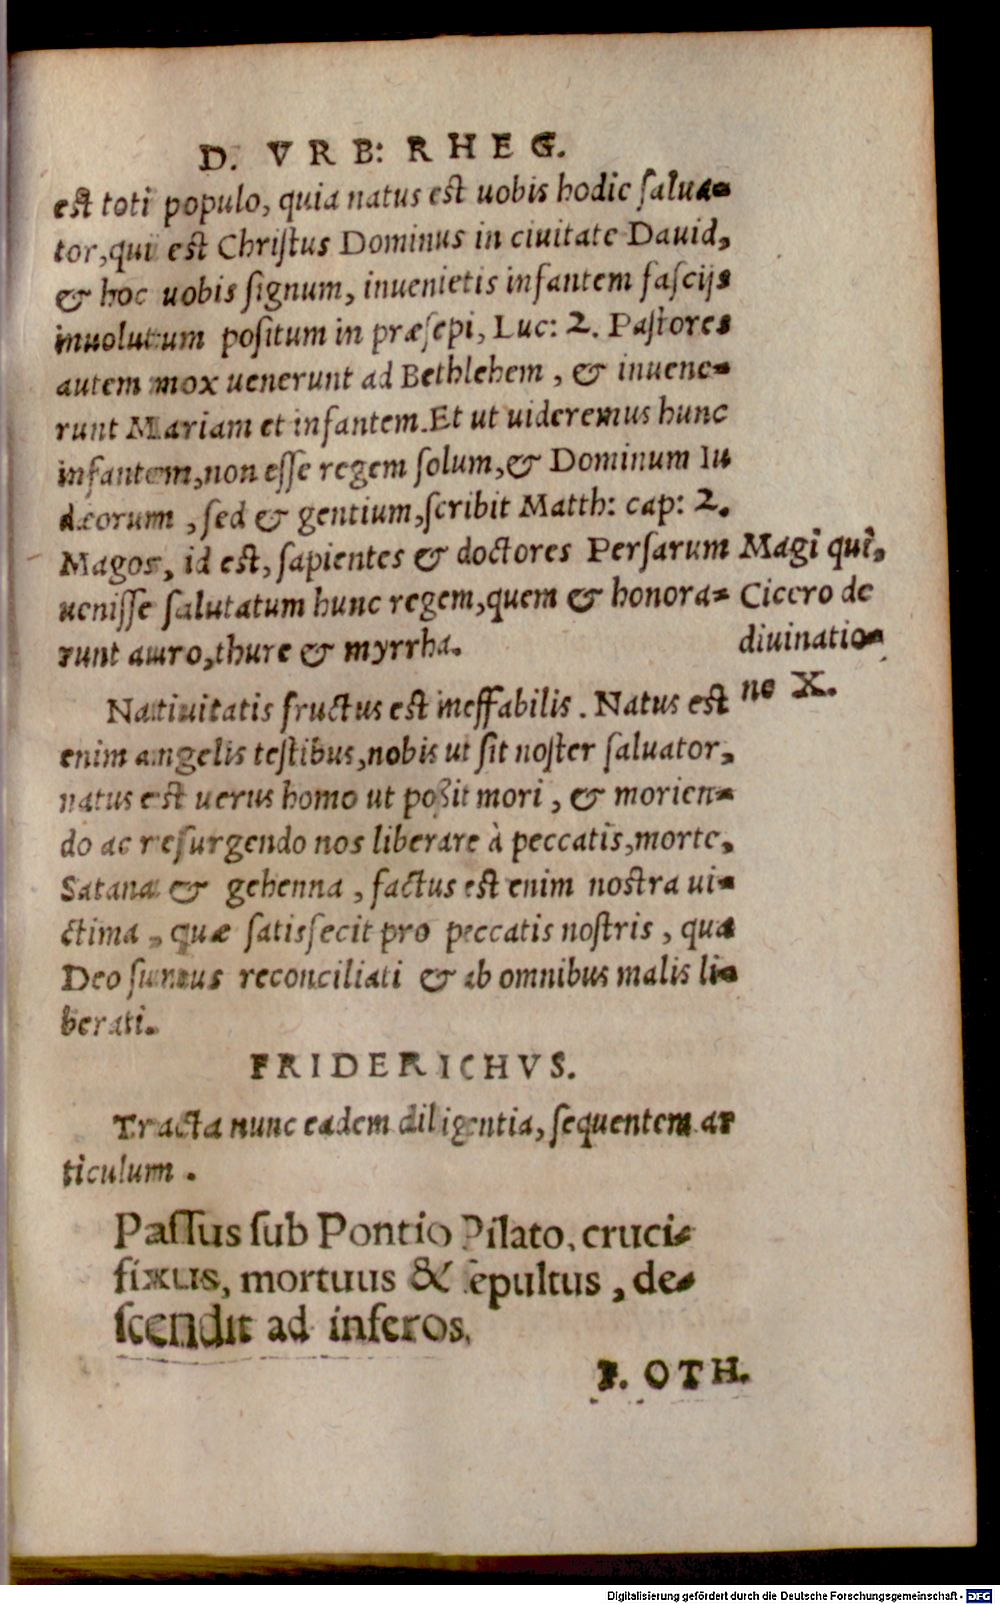 D. VRB: RHEG.
est toti populo, quia natus est uobis hodie salua-
tor, qui est Christus Dominus in ciuitate Dauid,
& hoc uobis signum, inuenietis infantem fascijs
inuolutum positum in præsepi, Luc: 2. Pastores
autem mox uenerunt ad Bethlehem, & inuene-
runt Mariam et infantem. Et ut uideremus hunc
infantem, non esse regem solum, & Dominum Iu
dæorum, sed & gentium, scribit Matth: cap: 2.
Magos, id est, sapientes & doctores Persarum
uenisse salutatum hunc regem, quem & honora-
runt auro, thure & myrrha.
Magi qui,
Cicero de
diuinatio-
ne X.
Natiuitatis fructus est ineffabilis. Natus est
enim angelis testibus, nobis ut sit noster saluator,
natus est uerus homo ut poßit mori, & morien-
do ac resurgendo nos liberare à peccatis, morte,
Satana & gehenna, factus est enim nostra ui-
ctima, quæ satisfecit pro peccatis nostris, qua
Deo sumus reconciliati & ab omnibus malis li-
berati.
FRIDERICHVS.
Tracta nunc eadem diligentia, sequentem ar
ticulum.
Passus sub Pontio Pilato, cruci-
fixus, mortuus & sepultus, de-
scendit ad inferos.
F. OTH.
Digitalisierung gefördert durch die Deutsche Forschungsgemeinschaft - DFG